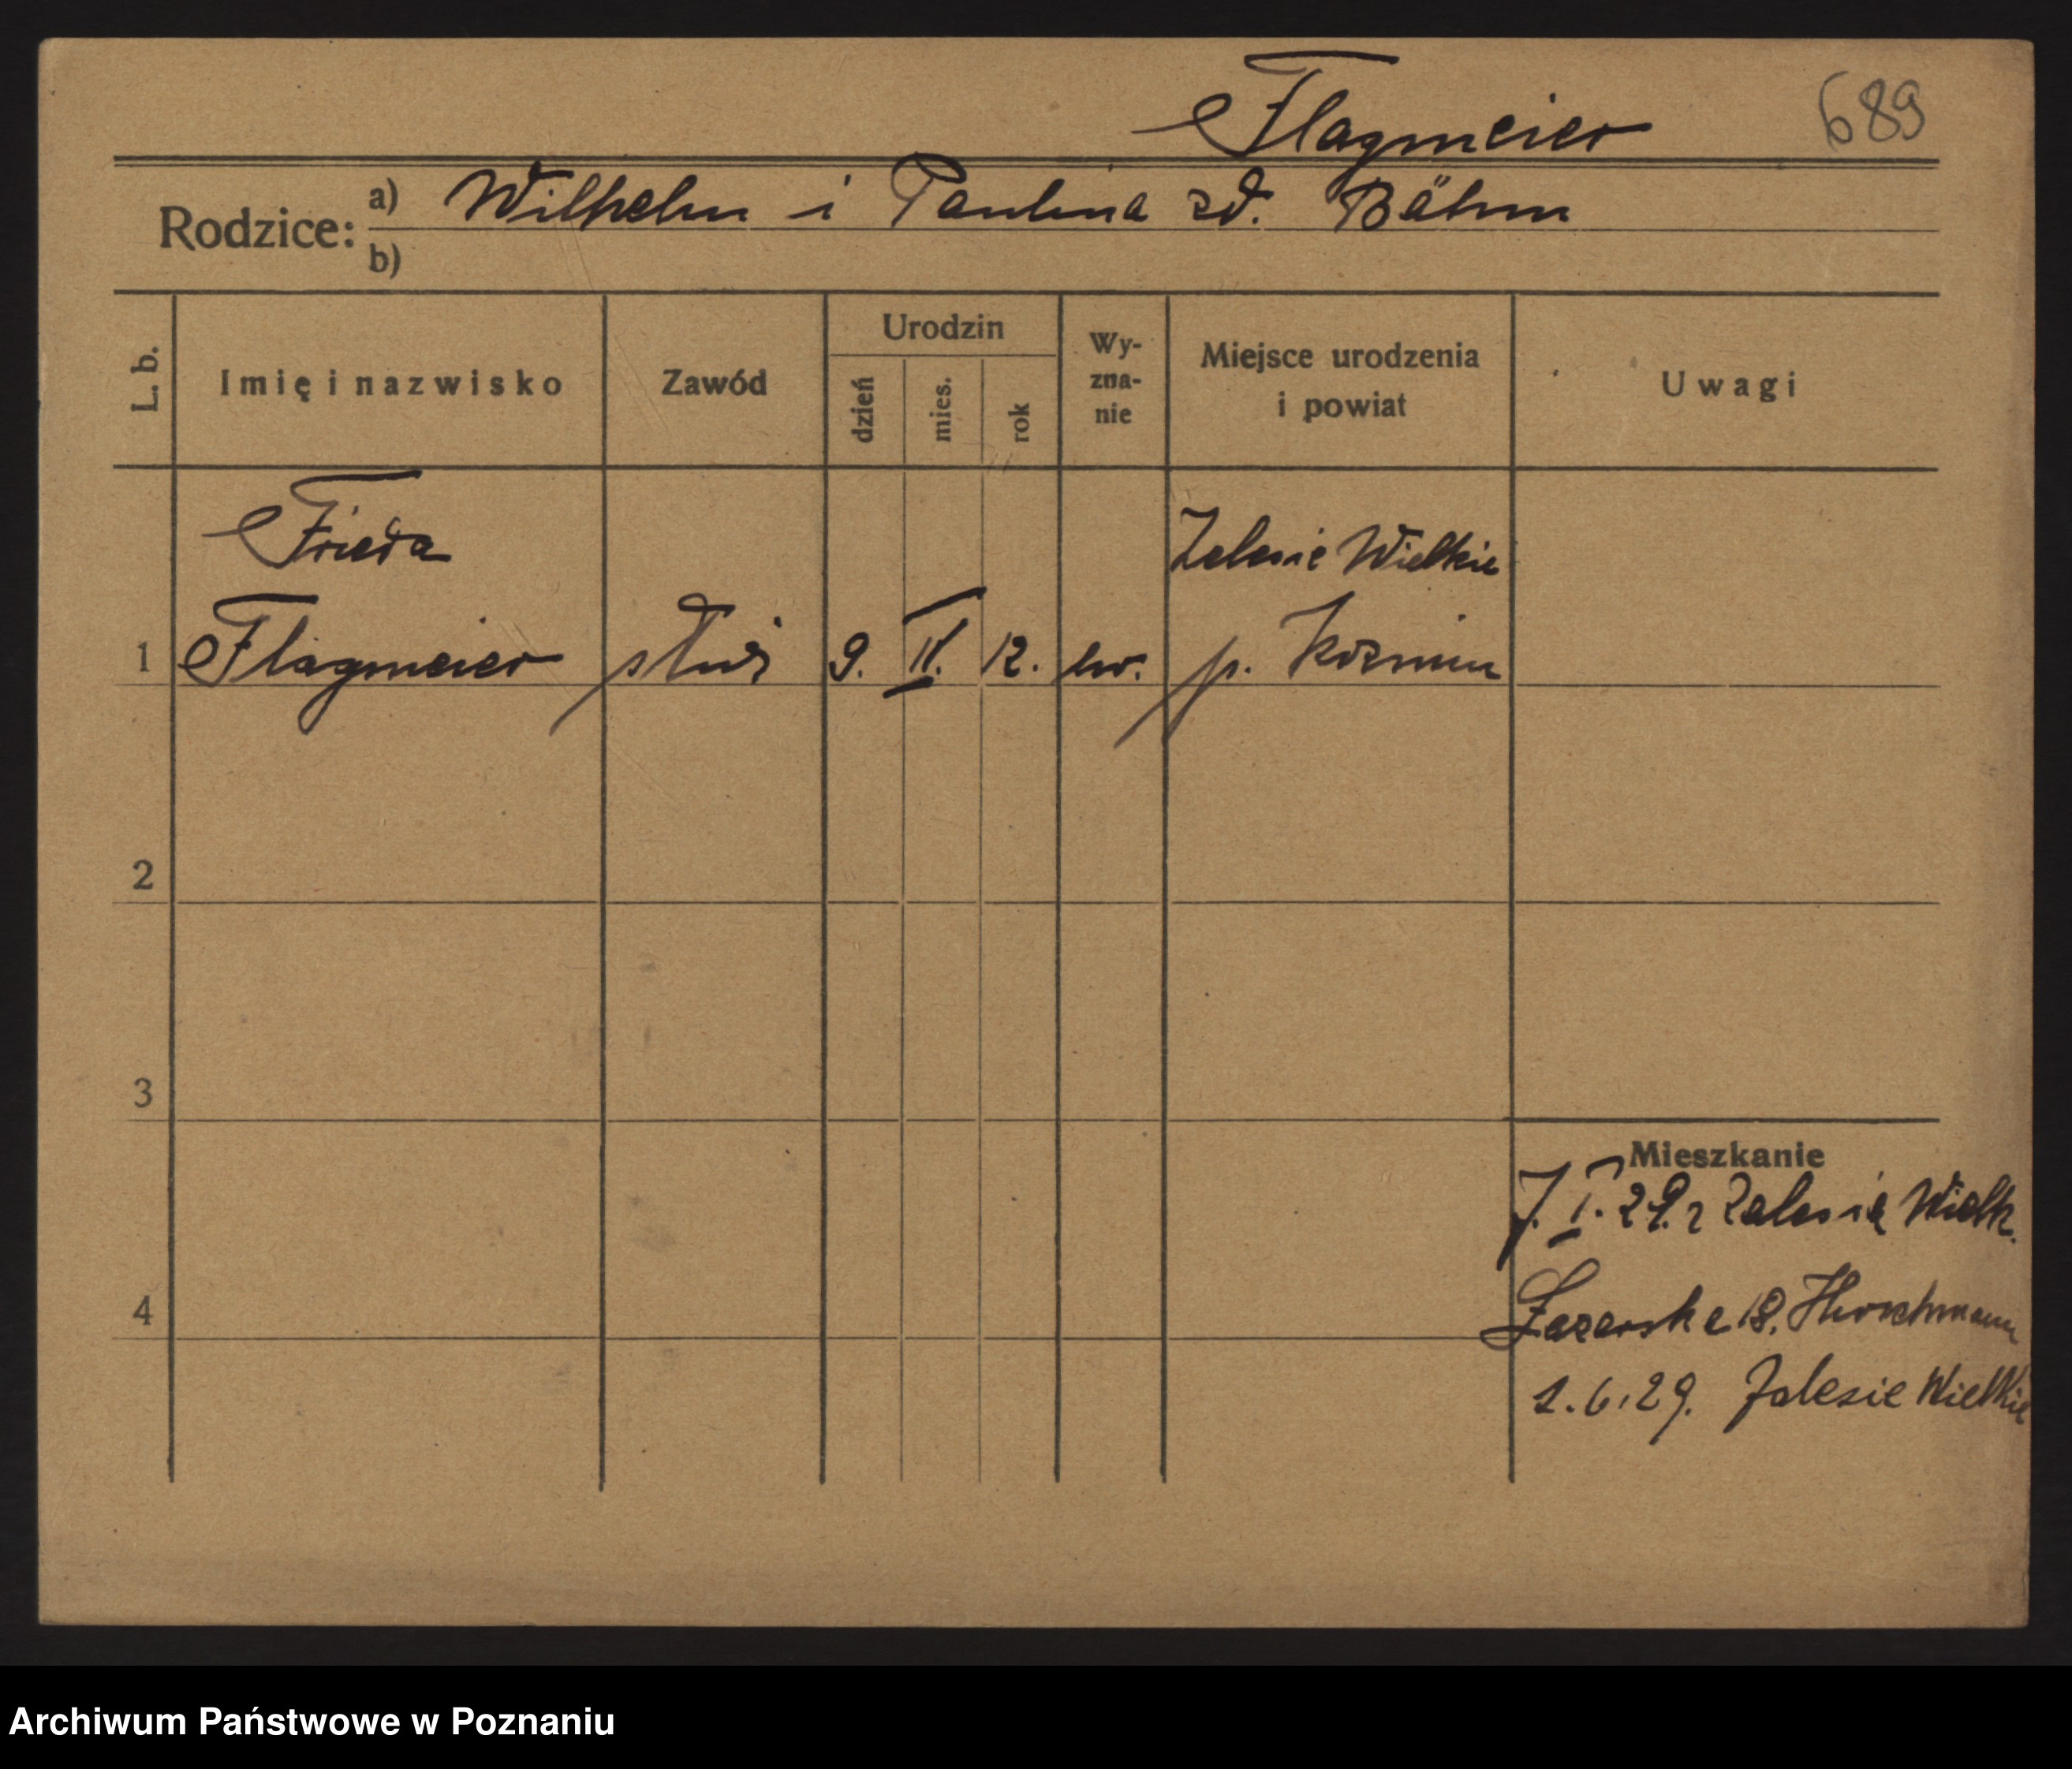 Flagmeier 689
Rodzice: a) Wilhelm i Paulina zd. Böhm
b)
L. b. Imię i nazwisko Zawód Urodzin dzień mies. rok Wy-zna-nie Miejsce urodzenia i powiat Uwagi
Frieda Zalesie Wielkie
1 Flagmeier służ 9. II. 12. ew. p. Koźmin
2
3
Mieszkanie
7. I. 29. z Zalesia Wielk.
4 Łazarska 18,
1.6.29. Zalesie Wielkie
Archiwum Państwowe w Poznaniu